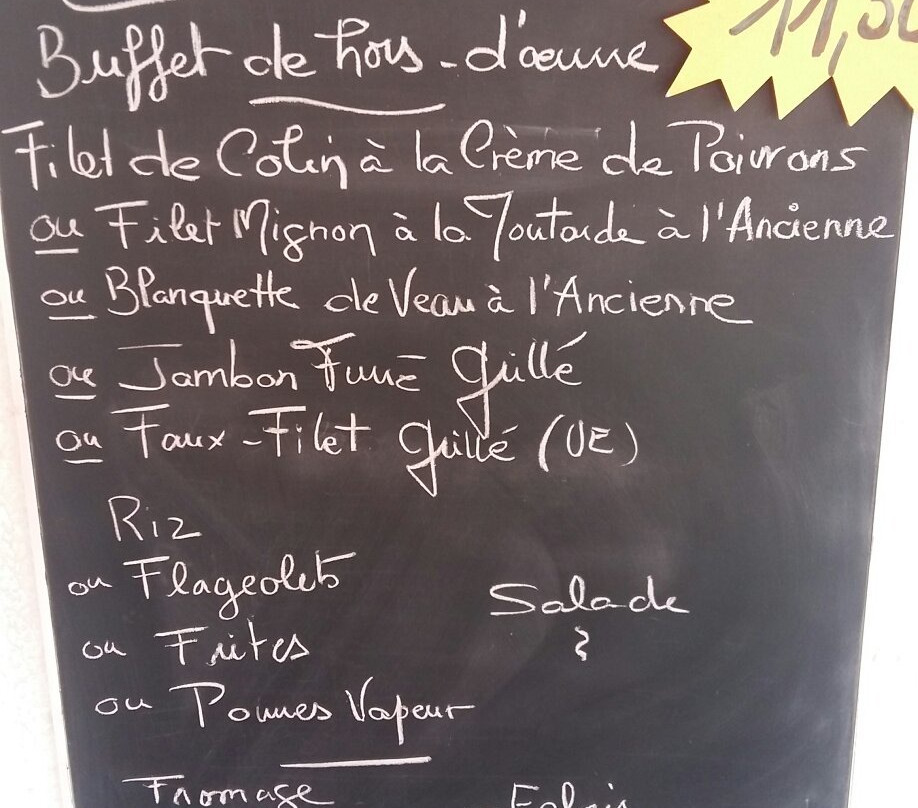 Buffet de hors-d'œuvre
Filet de Colin à la Crème de Poivrons
ou Filet Mignon à la Moutarde à l'Ancienne
ou Blanquette de Veau à l'Ancienne
ou Jambon Fumé Grillé
ou Faux-Filet Grillé (UE)
Riz
ou Flageolets
Salade
ou Frites
ou Pommes Vapeur
Fromage